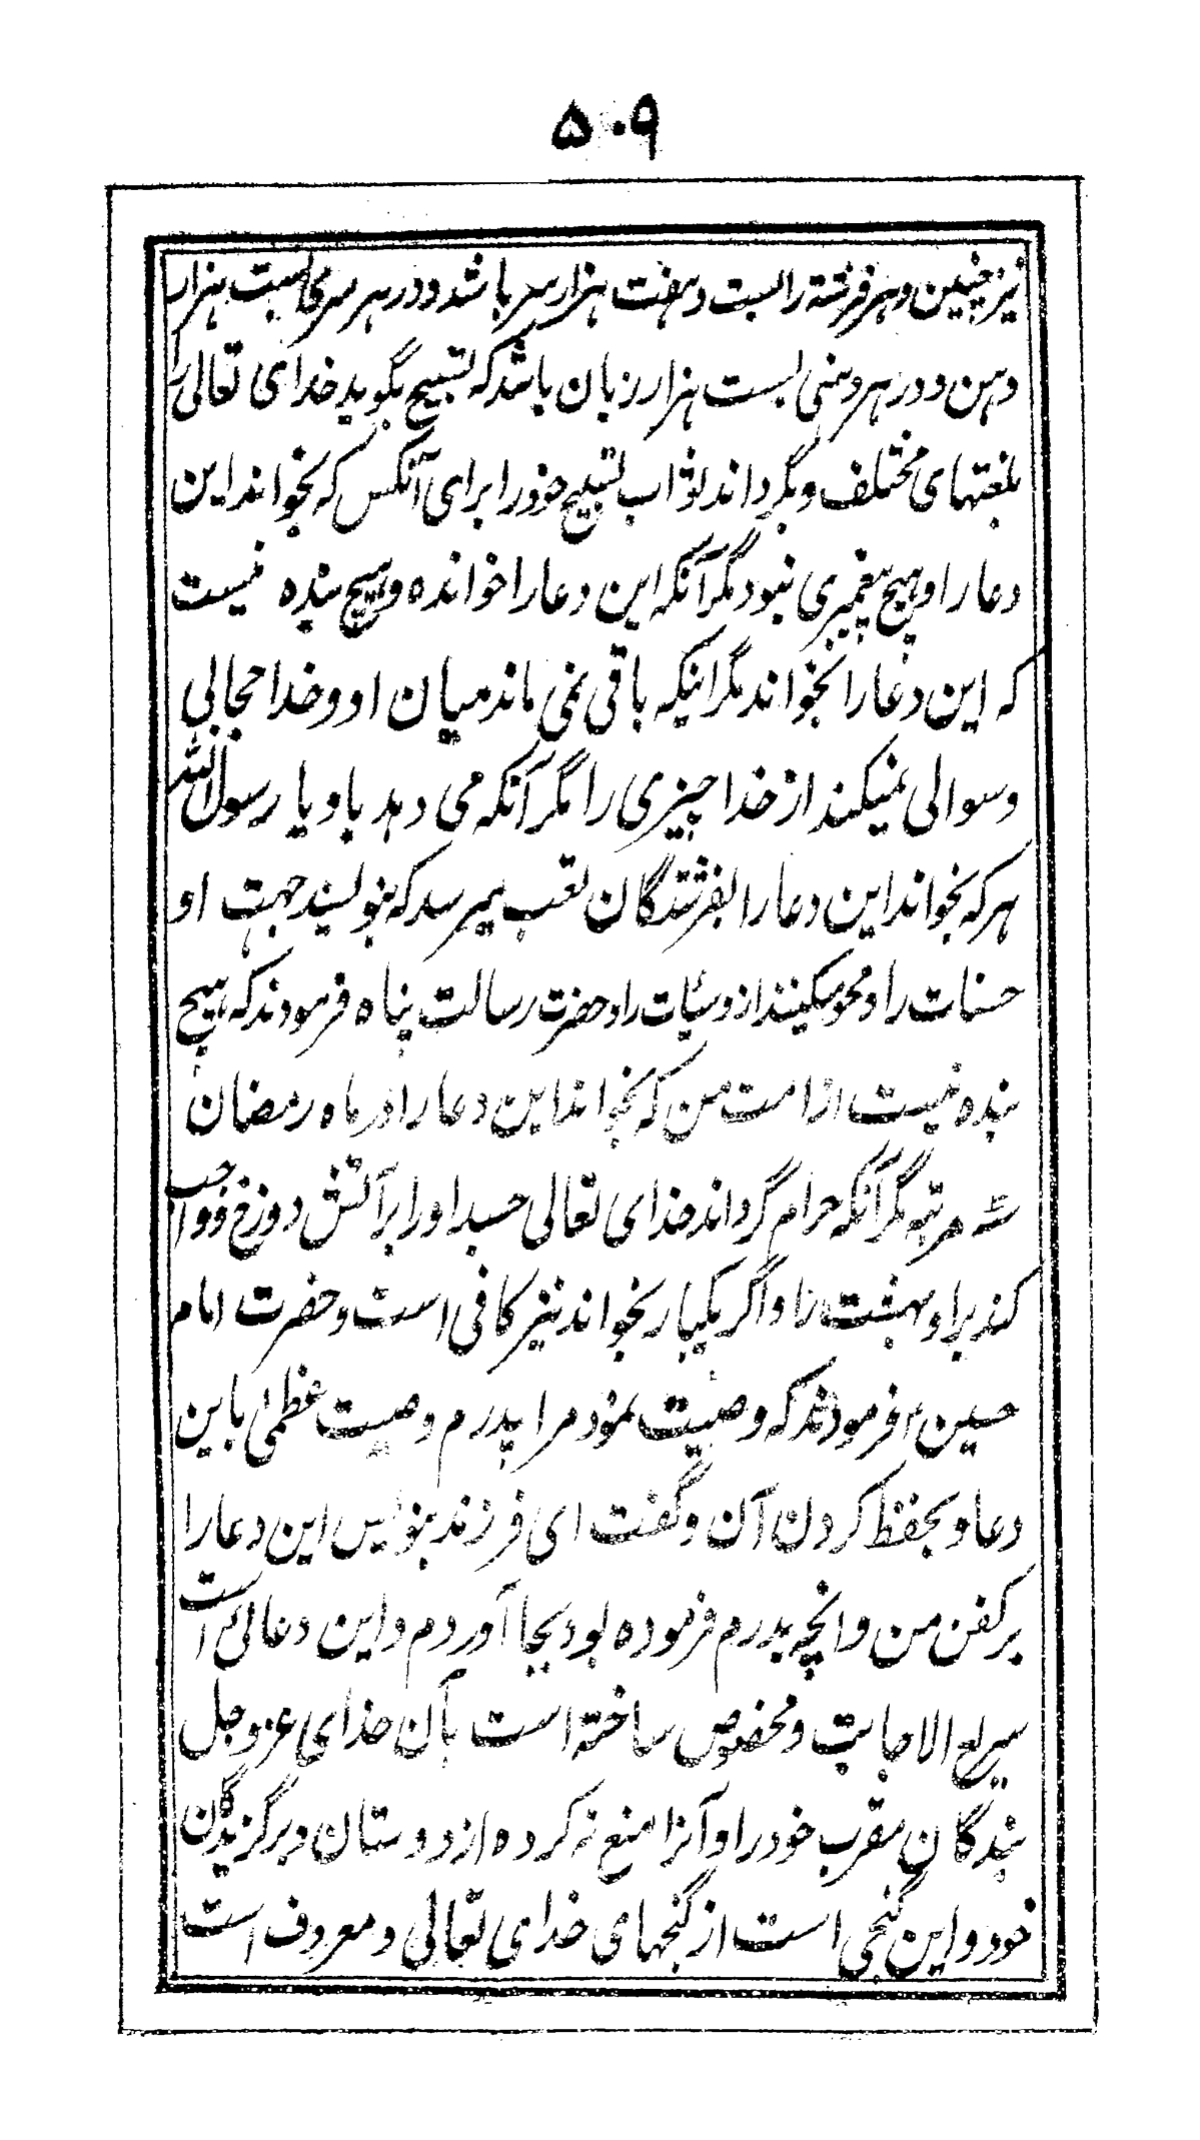 ۵۰۹
نیز چنین و هر فرشته را بیست و هفت هزار سر باشد و در هر سری بیست هزار
دهن و در هر دهنی بیست هزار زبان باشد که تسبیح بگوید خدای تعالی را
بلغتهای مختلف و بگرداند ثواب تسبیح خود را برای آنکس که بخواند این
دعا را و هیچ پیغمبری نبود مگر آنکه این دعا را خوانده و هیچ بنده نیست
که این دعا را بخواند مگر اینکه باقی نمی ماند میان او و خدا حجابی
و سوالی نمیکند از خدا چیزی را مگر آنکه می دهد باو یا رسول الله
هر که بخواند این دعا را بفرشتگان تعب میرسد که بنویسند جهت او
حسنات را و محو میکنند از و سیئات را و حضرت رسالت پناه فرمودند که هیچ
بنده نیست از امت من که بخواند این دعا را در ماه رمضان
سه مرتبه مگر آنکه حرام گرداند خدای تعالی جسد او را بر آتش دوزخ و واجب
کند برا و بهشت را و اگر یکبار بخواند نیز کافی است و حضرت امام
حسین ع فرمودند که وصیت نمود مرا پدرم وصیت عظمی باین
دعا و بحفظ کردن آن و گفت ای فرزند بنویس این دعا را
بر کفن من و انچه پدرم فرموده بود بجا آوردم و این دعائی است
سریع الاجابت و مخصوص ساخته است بآن خدای عز و جل
بندگان مقرب خود را و آنرا منع نه کرده از دوستان و برگزیدگان
خود و این گنجی است از گنجهای خدای تعالی و معروف است